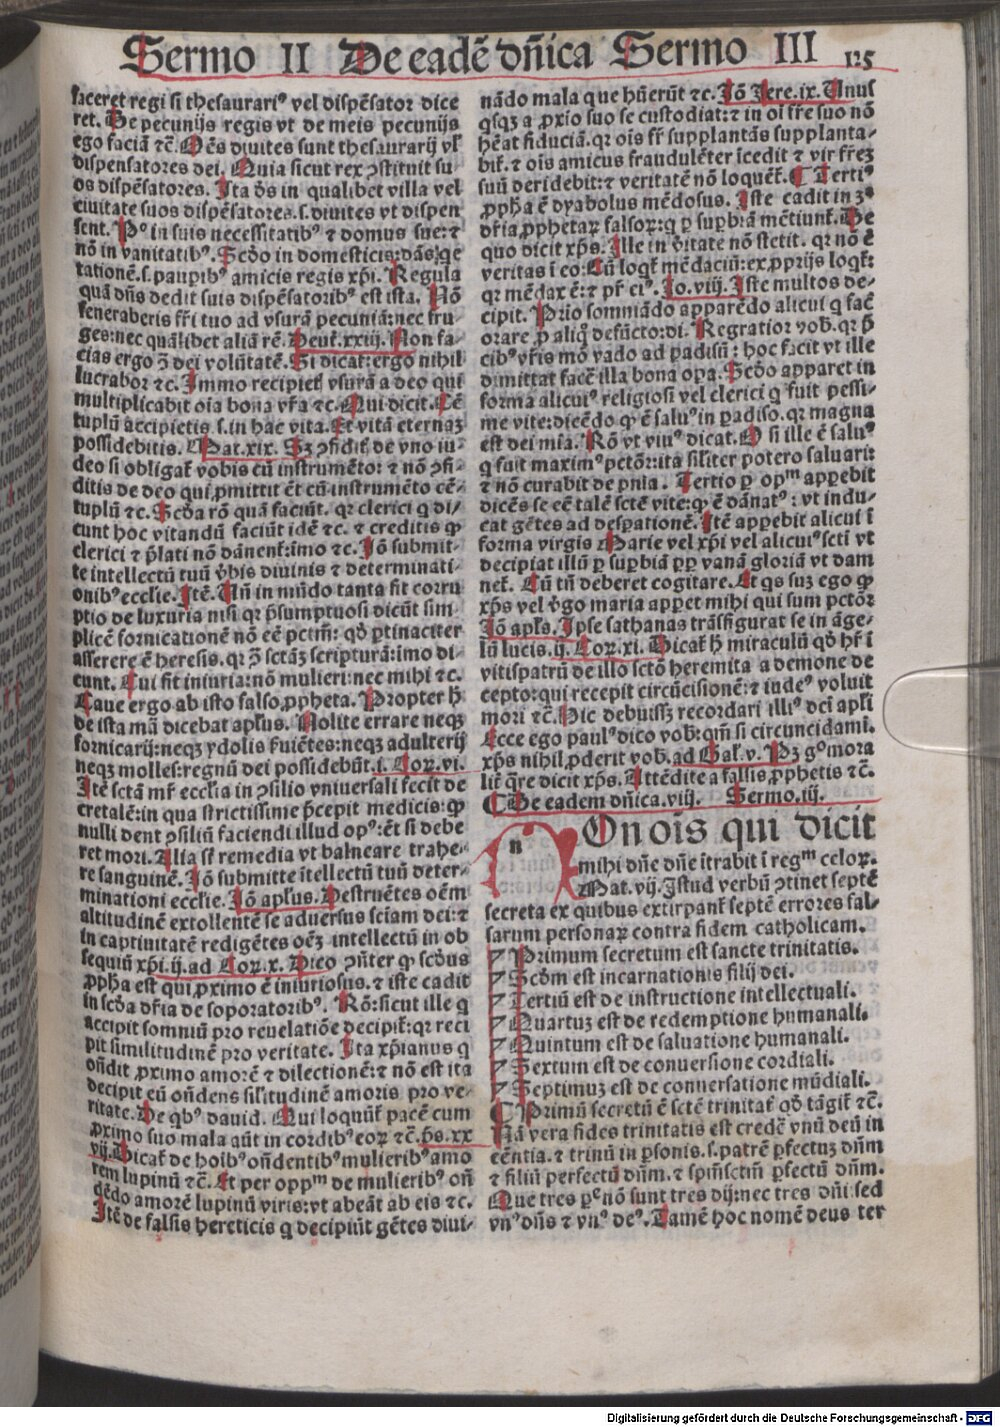 Sermo II De eadē dn̄ica Sermo III 125
faceret regi si thesaurariꝰ vel dispēsator dice
ret. De pecunijs regis vt de meis pecunijs
ego faciā ⁊c̄. Oēs diuites sunt thesaurarij vl̓
dispensatores dei. Quia sicut rex ꝯstituit su-
os dispēsatores. Ista dn̄s in qualibet villa vel
ciuitate suos dispēsatores.s.diuites vt dispen
sent. Pꝰ in suis necessitatibꝰ ⁊ domus sue: ⁊
nō in vanitatibꝰ. Scd̓o in domesticis:
tationē.s.pauꝑibꝰ amicis regis xp̄i. Regula
quā dn̄s dedit suis dispēsatoribꝰ est ista. Nō
feneraberis fr̄i tuo ad vsurā pecuniā:nec fru
ges:nec quālibet aliā rē. Deut̓.xxiij. Non fa-
cias ergo ꝯ̄ dei volūtatē. Si dicat:ergo nihil
lucrabor ⁊c. Immo recipiet̓ vsurā a deo qui
multiplicabit oīa bona vr̄a ⁊c. Qui dicit. Cē
tuplū accipietis s.in hac vita. Et vitā eternaꝫ
possidebitis. Mat.xix. Sꝫ ꝯfidit̓ de vno iu-
deo si obligat̓ vobis cū instrumēto: ⁊ nō ꝯfi-
ditis de deo qui ꝓmittit ēt cū instrumēto cē-
tuplū ⁊c. Scd̓a rō quā faciūt. qr clerici q di-
cunt hoc vitandū faciūt idē ⁊c. ⁊ creditis ꝙ
clerici ⁊ p̄lati nō dānent̓:īmo ⁊c. Iō submit-
te intellectū tuū v̓bis diuinis ⁊ determinati-
onibꝰ ecclie. Itē. Vn̄ in mūdo tanta fit corru
ptio de luxuria nisi qr p̄sumptuosi dicūt sim-
plicē fornicationē nō eē pctm̄: qd̓ ꝑtinaciter
asserere ē heresis. qr ꝯ̄ sctāꝫ scripturā:imo di-
cunt. Cui fit iniuria:nō mulieri:nec mihi ⁊c.
Caue ergo ab isto falso ꝓpheta. Propter h̓
de ista mā dicebat apl̓us. Nolite errare neqꝫ
fornicarij:neqꝫ ydolis ẜuiētes:neqꝫ adulterij
neqꝫ molles:regnū dei possidebūt.i. Coꝝ.vi.
Itē sctā mr̄ ecclia in ꝯsilio vniuersali fecit de
cretalē:in qua strictissime p̄cepit medicis:ꝙ
nulli dent ꝯsiliū faciendi illud opꝰ:ēt si debe
ret mori. Alia sr̄ remedia vt balneare trahe-
re sanguinē. Iō submitte ītellectū tuū deter-
minationi ecclie. Iō apl̓us. Destruētes oēm
altitudinē extollentē se aduersus sciam dei: ⁊
in captiuitatē redigētes oēꝫ intellectū in ob
sequiū xp̄i.ij.ad Coꝝ.x. Dico ꝯn̄ter ꝙ scd̓us
ꝓpha est qui ꝓximo ē iniuriosus. ⁊ iste cadit
in scd̓a dr̄ia de soporatoribꝰ. Rō:sicut ille q
accipit somniū pro reuelatiōe decipit̓:qr reci
pit similitudinē pro veritate. Ita xp̄ianus q
on̄dit ꝓximo amorē ⁊ dilectionē: ⁊ nō est ita
decipit eū on̄dens sil̓itudinē amoris pro ve-
ritate. De qbꝰ dauid. Qui loquūt̓ pacē cum
ꝓximo suo mala aūt in cordibꝰ eoꝝ ⁊c̄.ps.xx
vij. Dicat̓ de hoībꝰ on̄dentibꝰ mulieribꝰ amo
rem lupinū ⁊c̄. Et per oppᵐ de mulieribꝰ on̄
dēdo amorē lupinū viris:vt abeāt ab eis ⁊c.
Itē de falsis hereticis q decipiūt gētes diui-
nādo mala que hn̄erūt ⁊c. Iō Iere.ix. Unus
qsqꝫ a ꝓxio suo se custodiat: ⁊ in oī fr̄e suo nō
hēat fiduciā. qr ois fr̄ supplantās supplanta-
bit̓. ⁊ ois amicus fraudulēter īcedit ⁊ vir fr̄eꝫ
suū deridebit: ⁊ veritatē nō loquet̓. Tertiꝰ
ꝓpha ē dyabolus mēdosus. Iste cadit in 3ᵃ
dr̄ia ꝓphetaꝝ falsoꝝ:q ꝑ suꝑbiā mētiunt̓. De
quo dicit xp̄s. Ille in v̓itate nō stetit. qr nō ē
veritas ī eo: Cū loqt̓ mēdaciū:ex ꝓprijs loqt̓:
qr mēdax ē: ⁊ pr̄ eiꝰ. Io.viij. Iste multos de-
cipit. Prio somniādo apparēdo alicui q facē
orare ꝓ aliq defūcto:dī. Regratior vob̓. qr p̄
cibꝰ vr̄is mō vado ad ꝑadisū: hoc facit vt ille
dimittat facē illa bona oꝑa. Scd̓o apparet in
forma alicuiꝰ religiosi vel clerici q fuit pessi-
me vite:dicēdo ꝙ ē saluꝰ in ꝑadiso. qr magna
est dei mīa. Rō vt viuꝰ dicat. O si ille ē saluꝰ
q fuit maximꝰ pctōr:ita sil̓iter potero saluari:
⁊ nō curabit de pn̄ia. Tertio ꝑ opᵐ apꝑebit
dicēs se eē talē sctē vite:ꝙ ē dānatꝰ: vt indu-
cat gētes ad desꝑationē. Itē apꝑebit alicui ī
forma virgis Marie vel xp̄i vel alicuiꝰ scti vt
decipiat illū ꝑ suꝑbiā ꝑꝑ vanā gloriā vt dam
net̓. Cū tn̄ deberet cogitare. Et qs suꝫ ego ꝙ
xp̄s vel v̓go maria apꝑet mihi qui sum pctōr
Iō apl̓s. Ipse sathanas trāsfigurat se in āge-
lū lucis.ij. Coꝝ.xi. Dicat̓ h̓ miraculū qd̓ hr̄ ī
vitispatrū de illo sctō heremita a demone de
cepto:qui recepit circūcisionē: ⁊ iudeꝰ voluit
mori ⁊c̄. Hic debuissꝫ recordari illiꝰ dci apl̓i
Ecce ego paulꝰ dico vob̓:qm̄ si circuncidami.
xp̄s nihil ꝓderit vob̓. ad Gal̓.v. Pꝫ gᵒ mora
lit̓ qr̄e dicit xp̄s. Attēdite a falsis ꝓphetis ⁊c̄.
De eadem dn̄ica.viij. Sermo.iij.
nOn oīs qui dicit
mihi dn̄e dn̄e ītrabit ī regᵐ celoꝝ.
Mat.vij. Istud verbū ꝯtinet septē
secreta ex quibus extirpant̓ septē errores fal-
sarum personaꝝ contra fidem catholicam.
Primum secretum est sancte trinitatis.
Scd̓m est incarnationis filij dei.
Tertiū est de instructione intellectuali.
Quartuꝫ est de redemptione humanali.
Quintum est de saluatione humanali.
Sextum est de conuersione cordiali.
Septimuꝫ est de conuersatione mūdiali.
Primū secretū ē sctē trinitat̓ qd̓ tāgit̓ ⁊c̄.
Nā vera fides trinitatis est credē vnū deū in
eēntia. ⁊ trinū in ꝑsonis.s.patrē ꝑfectuꝫ dn̄m
⁊ filiū perfectū dn̄m. ⁊ spm̄sctm̄ ꝑfectū dn̄m.
Que tres ꝑᵉ nō sunt tres dij:nec tres dn̄i sed
vnꝰ dn̄s ⁊ vnꝰ deꝰ. Tamē hoc nomē deus ter
Digitalisierung gefördert durch die Deutsche Forschungsgemeinschaft - DFG